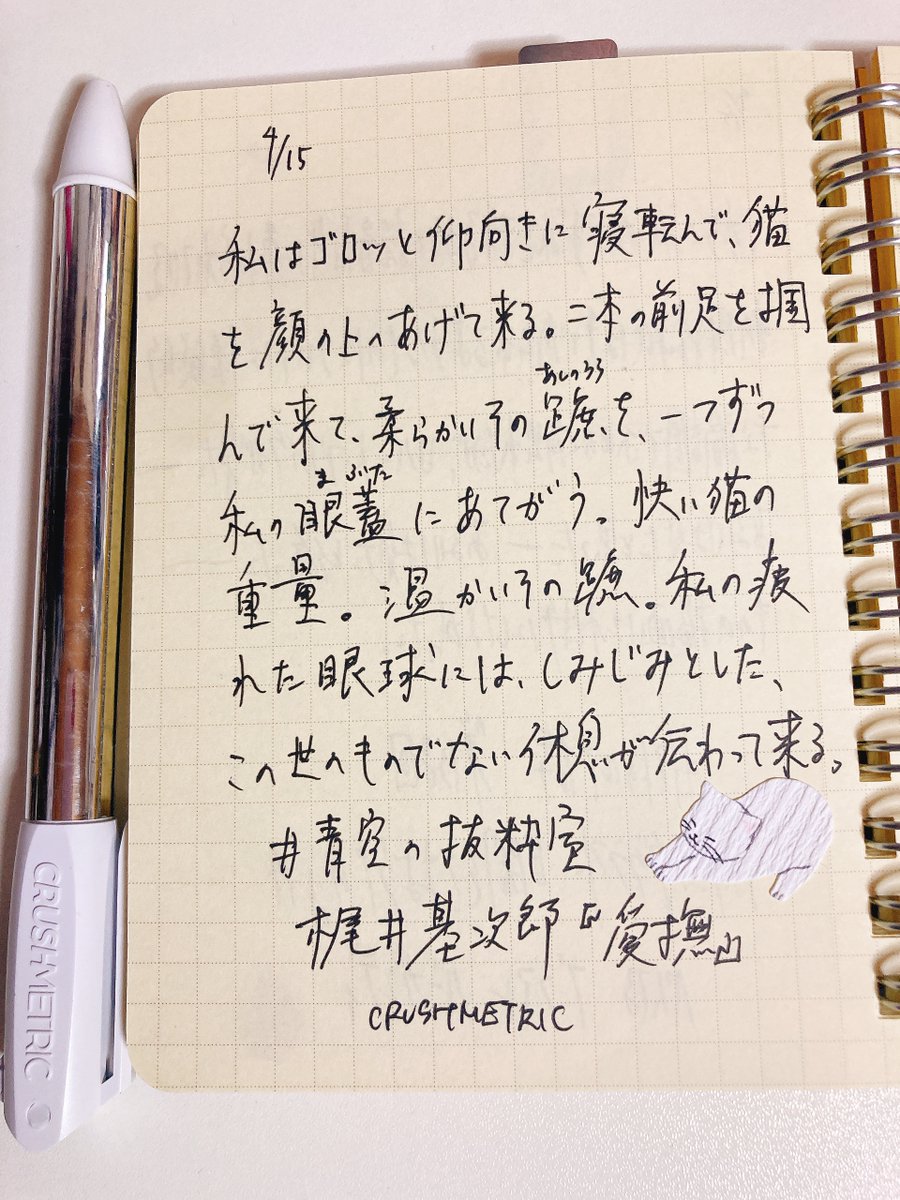 4/15
私はゴロッと仰向きに寝転んで、猫
を顔の上へあげて来る。二本の前足を掴
んで来て、柔らかいその蹠を、一つずつ
あしのうら
私の眼蓋にあてがう。快い猫の
まぶた
重量。温かいその蹠。私の疲
れた眼球には、しみじみとした、
この世のものでない休息が伝わって来る。
#青空の抜粋室
梶井基次郎『愛撫』
CRUSHMETRIC
CRUSHMETRIC